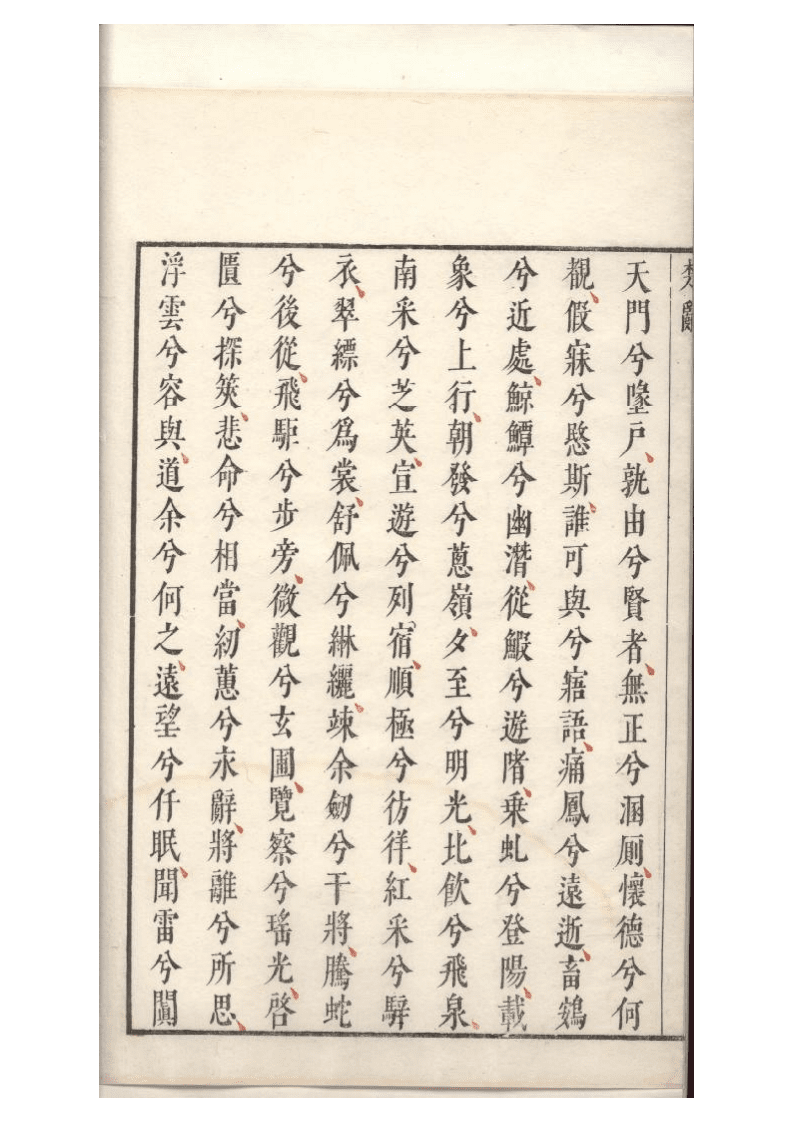 楚辭
天門兮墬戶孰由兮賢者無正兮溷厠懷德兮何
覩假寐兮愍斯誰可與兮寤語痛鳳兮遠逝畜鴳
兮近處鯨鱏兮幽潛從鰕兮遊陼乗虬兮登陽載
象兮上行朝發兮蔥嶺夕至兮明光北飲兮飛泉
南采兮芝英宣遊兮列宿順極兮彷徉紅采兮騂
衣翠縹兮爲裳舒佩兮綝纚竦余劒兮干將騰蛇
兮後從飛駏兮步旁微觀兮玄圃覽察兮瑤光啓
匱兮探筴悲命兮相當紉蕙兮永辭將離兮所思
浮雲兮容與道余兮何之遠望兮仟眠聞雷兮闐